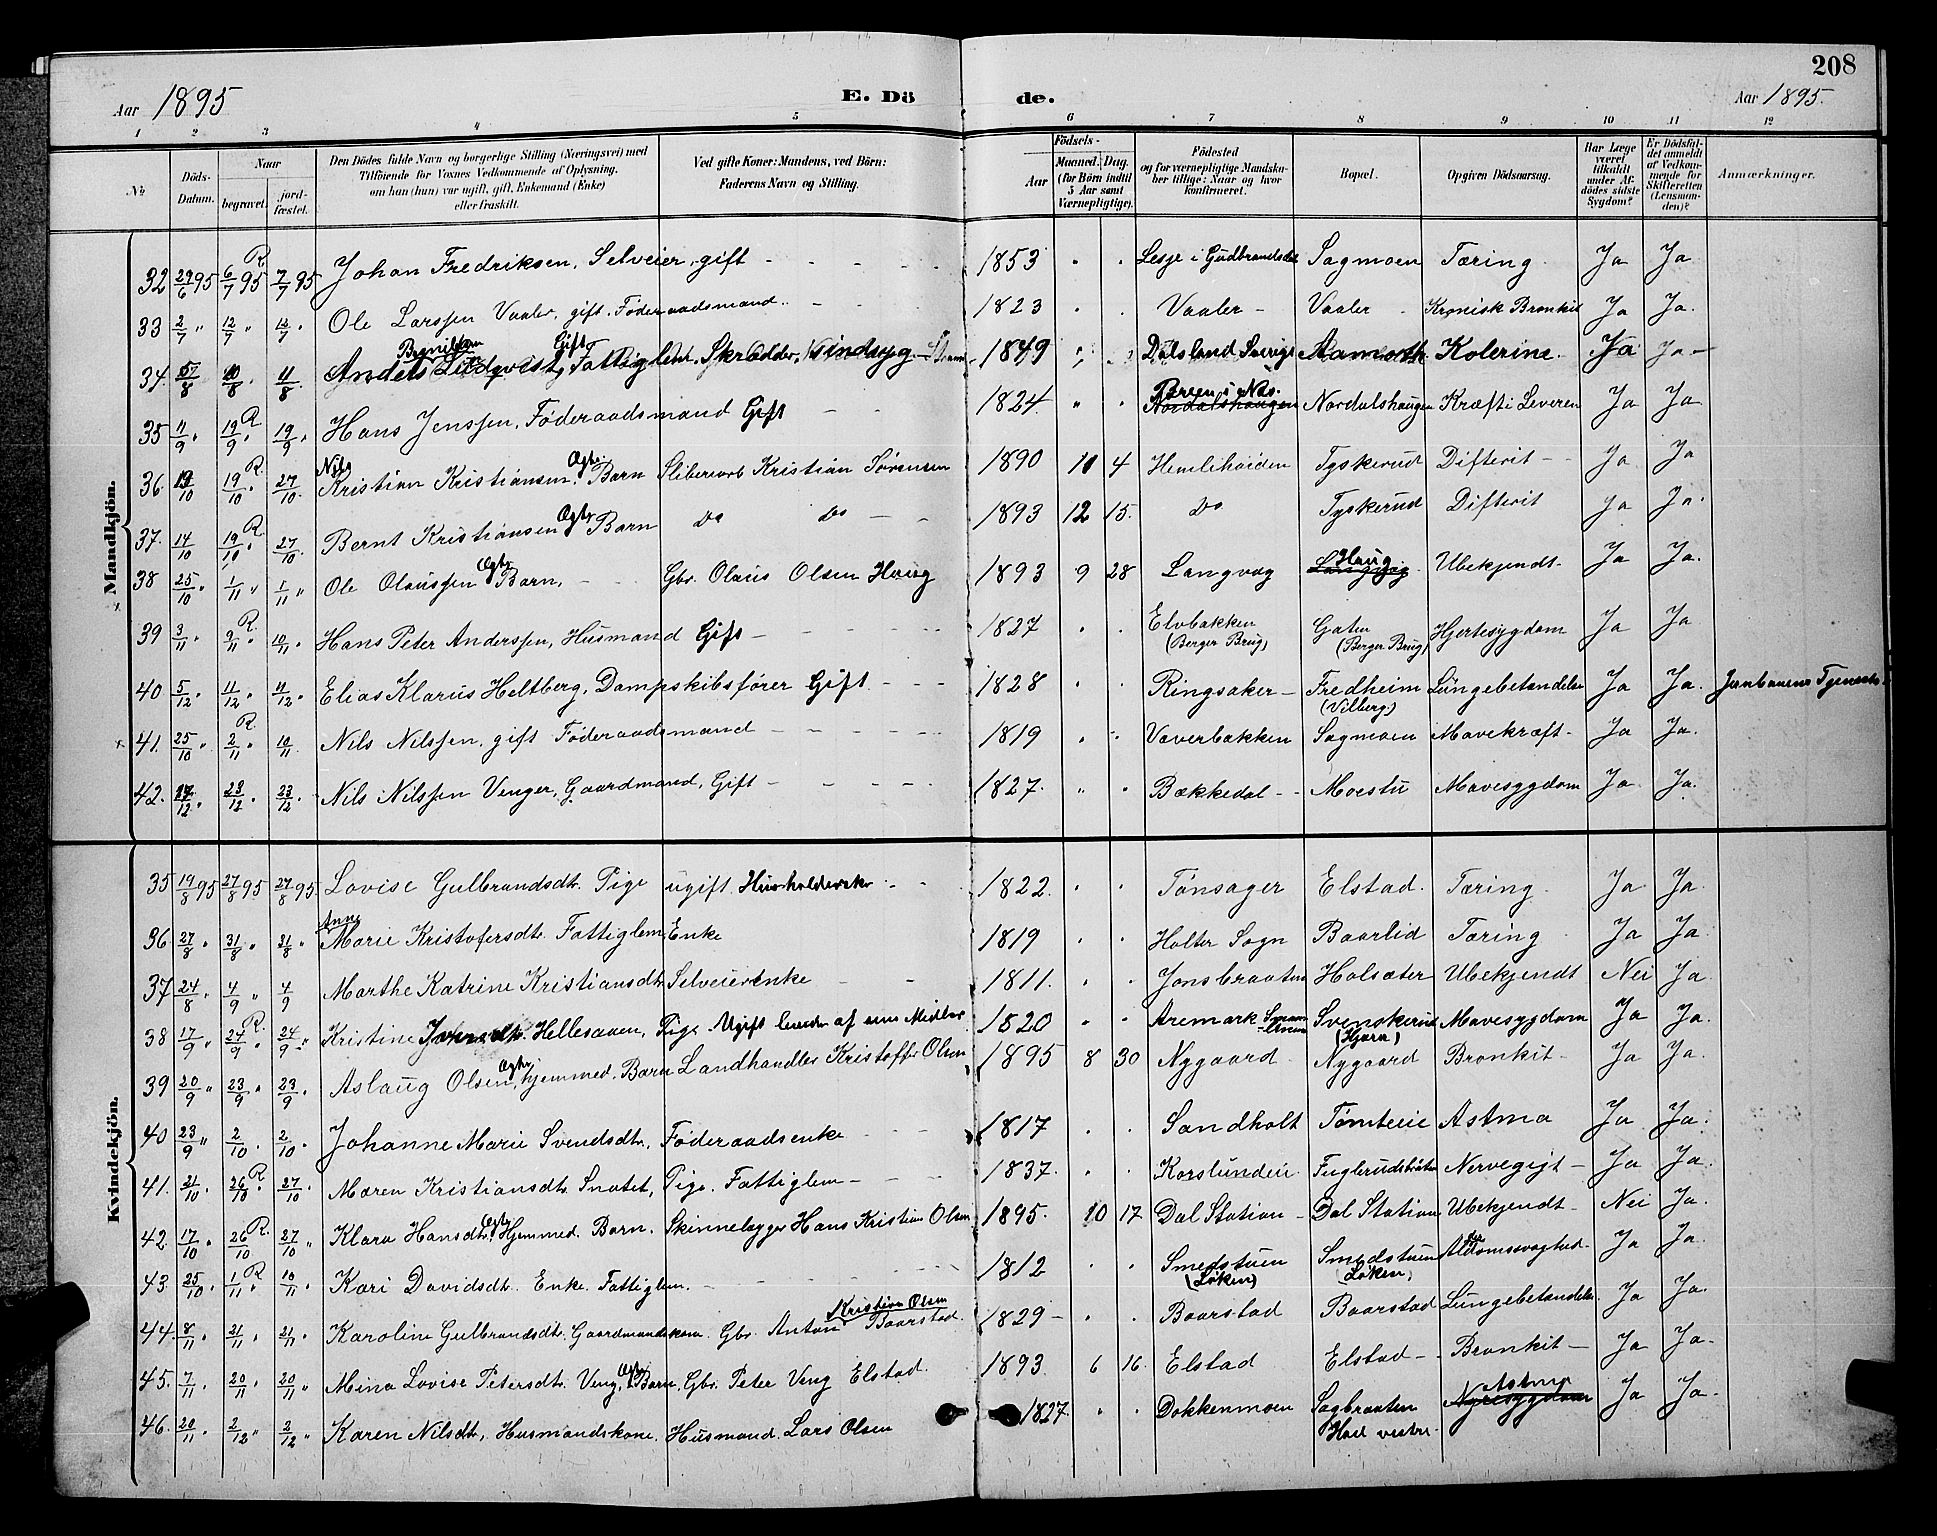 208
Aar 1895 E. Dö de. Aar 1895.
1 2 3 4 5 6 7 8 9 10 11 12
No Döds-Datum. Naar begravet. jord-fæstet. Den Dödes fulde Navn og borgerlige Stilling (Næringsvei) med Tilföiende for Voxnes Vedkommende af Oplysning, om han (hun) var ugift, gift, Enkemand (Enke) eller fraskilt. Ved gifte Koner: Mandens, ved Börn: Faderens Navn og Stilling. Födsels- Aar Maaned. Dag. (for Börn indtil 5 Aar samt Værnepligtige). Födested og for værnepligtige Mandskaber tillige: Naar og hvor konfirmeret. Bopæl. Opgiven Dödsaarsag. Har Læge været tilkaldt under Afdödes sidste Sygdom? Er Dödsfaldet anmeldt af Vedkommende for Skifteretten (Lensmanden)? Anmærkninger.
Mandkjön.
32 29/6 95 6/7 95 R. 7/7 95 Johan Fredriksen, Selveier, gift 1853 Lesje i Gudbrandsdal Sagmoen Tæring Ja Ja
33 2/7 " 12/7 " 12/7 " Ole Larssen Vaaler, gift. Föderaadsmand 1823 Vaaler Vaaler Kronisk Bronkit Ja Ja.
34. 5/8 10/8 . 11/8 . Anders Lindqvist, Gift Fattiglem, Skrædder, Sindssyg 1849 Dalsland Sverige Aamodt Kolerine. Ja Ja
35 11/9 . 19/9 . R 19/9 . Hans Jenssen, Föderaadsmand Gift 1824. Nordalshaugen i Næs. Nordalshaugen Kræft i Leveren Ja Ja
36. 12/10 19/10 . R. 27/10 . Nils Kristian Kristiansen, Ægte Barn Sliberiarb Kristian Sørensen 1890 11 4 Hemlihøiden Tyskerud Difterit Ja Ja
37. 14/10 19/10 . R. 27/10. Bernt Kristiansen Ægte Barn Do Do 1893 12 15. Do Tyskerud Difterit Ja Ja.
38 25/10 " 1/11 " 1/11 " Ole Olaussen Ægte Barn, Gbr. Olaus Olsen Haug 1893 9 28 Langvag Haug Ubekjendt Ja Ja.
39 3/11 . 9/11 . R. 10/11 . Hans Peter Anderssen, Husmand Gift 1827 Elvbakken (Berger Brug) Gaten (Berger Brug) Hjertesygdom Ja Ja
40 5/12 . 11/12 . 11/12 . Elias Klarus Heltberg, Dampskibsfører Gift 1828 Ringsaker Fredheim (Vilberg.) Lungebetændelse Ja Ja. Jernbanens Tjeneste
41. 25/10 . 2/11 . R. 10/11 Nils Nilssen, gift Föderaadsmand 1819 Væverbakken Sagmoen Mavekræft Ja Ja.
42. 17/12 . 23/12 . 23/12 . Nils Nilssen Venger, Gaardmand, Gift 1827. Bækkedal Moestu Mavesygdom Ja Ja.
Kvindekjön.
35 19/8 95 27/8 95 27/8 95. Lovise Gulbrandsdtr. Pige ugift Husholderske 1822. Tønsager Elstad. Tæring. Ja Ja.
36. 27/8 " 31/8 " 31/8 " Anne Marie Kristofersdtr. Fattiglem Enke 1819 Holter Sogn Baarlid Tæring Ja Ja.
37 24/8 . 4/9 " 4/9 Marthe Katrine Kristiansdtr. Selveierenke 1811. Jonsbraaten Holsæter Ubekjendt Nei Ja
38 17/9 " 24/9 . R. 24/9 . Kristine Hellesaaen, Pige Ugift af sine Midler 1820 Aremark Smaalenene Svenskerud (Hjera) Mavesygdom Ja Ja.
39 20/9 " 23/9 . 23/9 . Aslaug Olsen, Ægte hjemmed. Barn Landhandler Kristoffer Olsen 1895 8 30 Nygaard Nygaard Bronkit Ja Ja.
40 23/9 " 2/10 . 2/10 . Johanne Marie Svendsdtr. Föderaadsenke 1817 Sandholt Tømteie Astma Ja Ja.
41. 21/10 . 26/10 . R. 27/10 . Maren Kristiansdtr. Snatet, Pige. Fattiglem 1837. Korslunden Fuglerudsbraaten Nervegigt Ja Ja.
42. 17/10 . 26/10 R. 27/10 " Klara Hansdtr. Ægte Hjemmed. Barn. Skinnelægger Hans Kristian Olsen 1895. 10 17 Dal Station Dal Station Ubekjendt Nei Ja.
43. 25/10 . 1/11 . R 10/11 . Kari Davidsdtr. Enke. Fattiglem. 1812 Smedstuen (Løken) Smedstuen (Løken) Alderdomssvaghed. Ja Ja.
44. 8/11 . 21/11 . 21/11 . Karoline Gulbrandsdtr. Gaardmandskone. Gbr. Anton Kristian Olsen Baarstad. 1829 Baarstad Baarstad Lungebetændelse Ja Ja.
45. 7/11 . 20/11 . 20/11 " Mina Lovise Petersdtr. Veng, Ægte Barn, Gbr. Peter Veng Elstad. 1893 6 16. Elstad Elstad Bronkit Ja Ja.
46. 20/11 . 2/12 " 2/12 " Karen Nilsdtr, Husmandskone. Husmand. Lars Olsen 1827. Dokkenmoen Sagbraaten Hoel vestre Nyresygdom Astma Ja Ja.